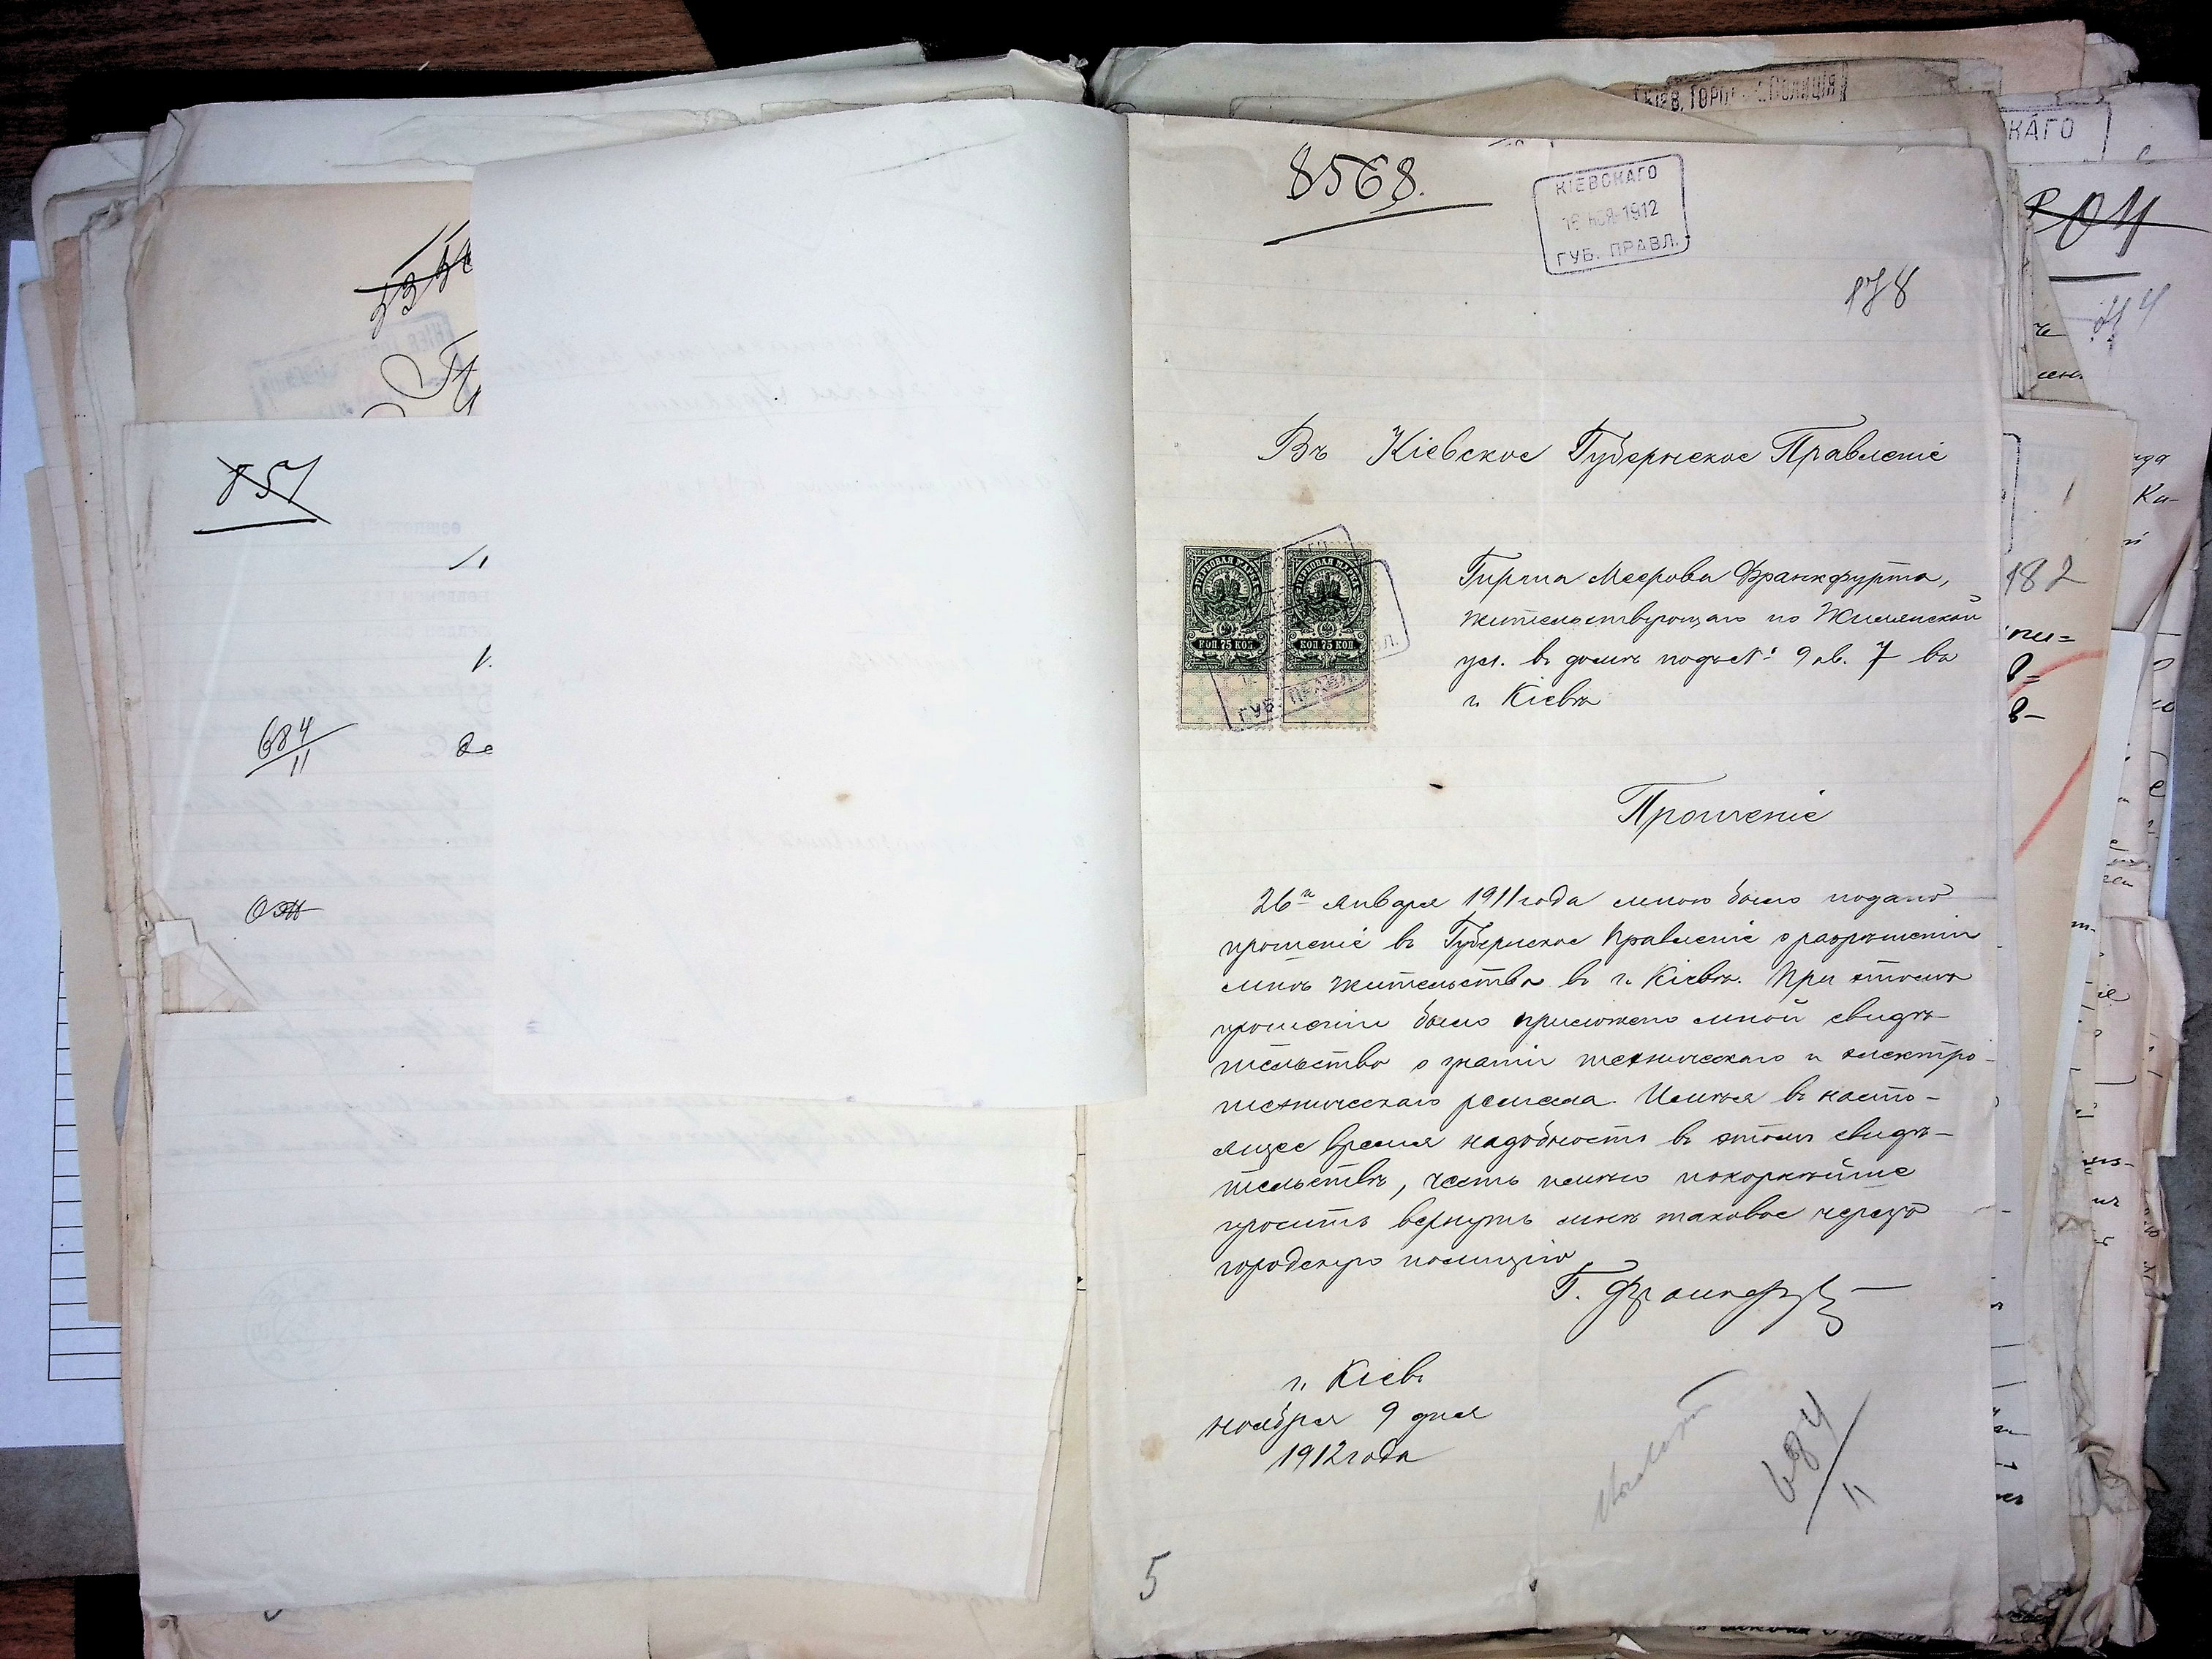 857
684/11
8568.
КІЕВСКАГО
16 НОЯ 1912
ГУБ. ПРАВЛ.
178
Въ Кіевское Губернское Правленіе
ГЕРБОВАЯ МАРКА
КОП. 75 КОП.
ГЕРБОВАЯ МАРКА
КОП. 75 КОП.
ГУБ. ПРАВЛ.
Гирша Меерова Франкфурта,
жительствующаго по Жилянской
ул. въ домѣ подъ № 9 кв. 7 въ
г. Кіевѣ
Прошеніе
26го января 1911 года мною было подано
прошеніе въ Губернское Правленіе о разрѣшеніи
мнѣ жительства въ г. Кіевѣ. При этомъ
прошеніи было приложено мной свидѣ-
тельство о знаніи техническаго и электро-
техническаго ремесла. Имѣя въ насто-
ящее время надобность въ этомъ свидѣ-
тельствѣ, честь имѣю покорнѣйше
просить вернуть мнѣ таковое черезъ
городскую полицію
Г. Франкфурт
г. Кіевъ
ноября 9 дня
1912 года
684/11
5
КІЕВ. ГОРОД. ПОЛИЦІЯ
СКАГО
182